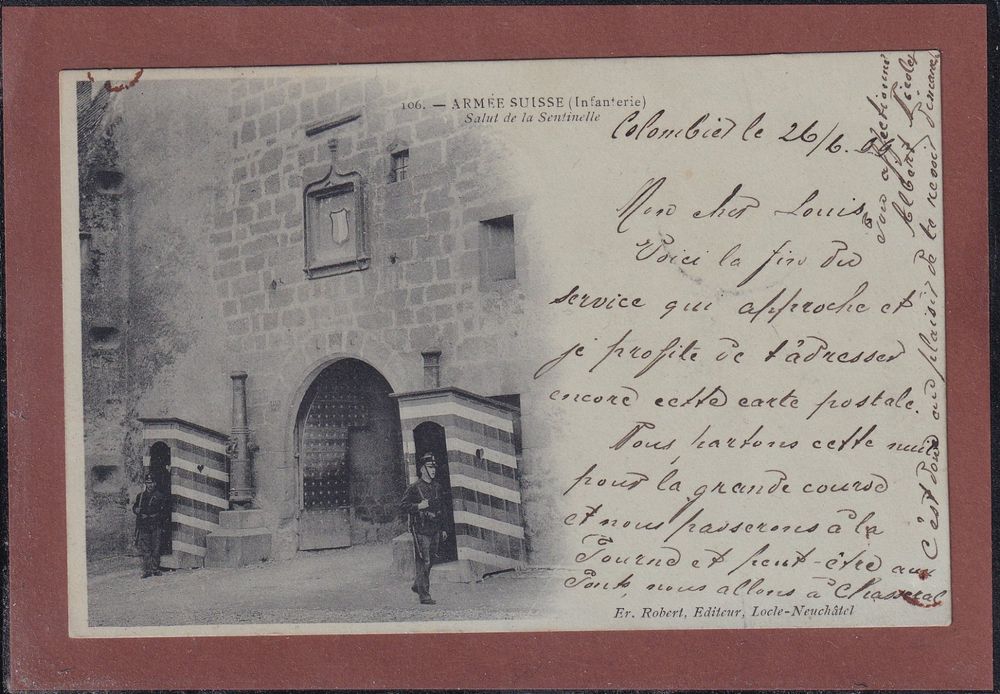 106. — ARMÉE SUISSE (Infanterie)
Salut de la Sentinelle
Colombier le 26/6.
Mon cher Louis,
Voici la fin du
service qui approche et
je profite de t'adresser
encore cette carte postale.
Nous partons cette nuit
pour la grande course
et nous passerons à la
Tourne et peut-être aux
Ponts, nous allons à Chasseral
C'est donc au plaisir de te revoir dimanche
Ton affectionné
Albert
Er. Robert, Editeur, Locle-Neuchâtel